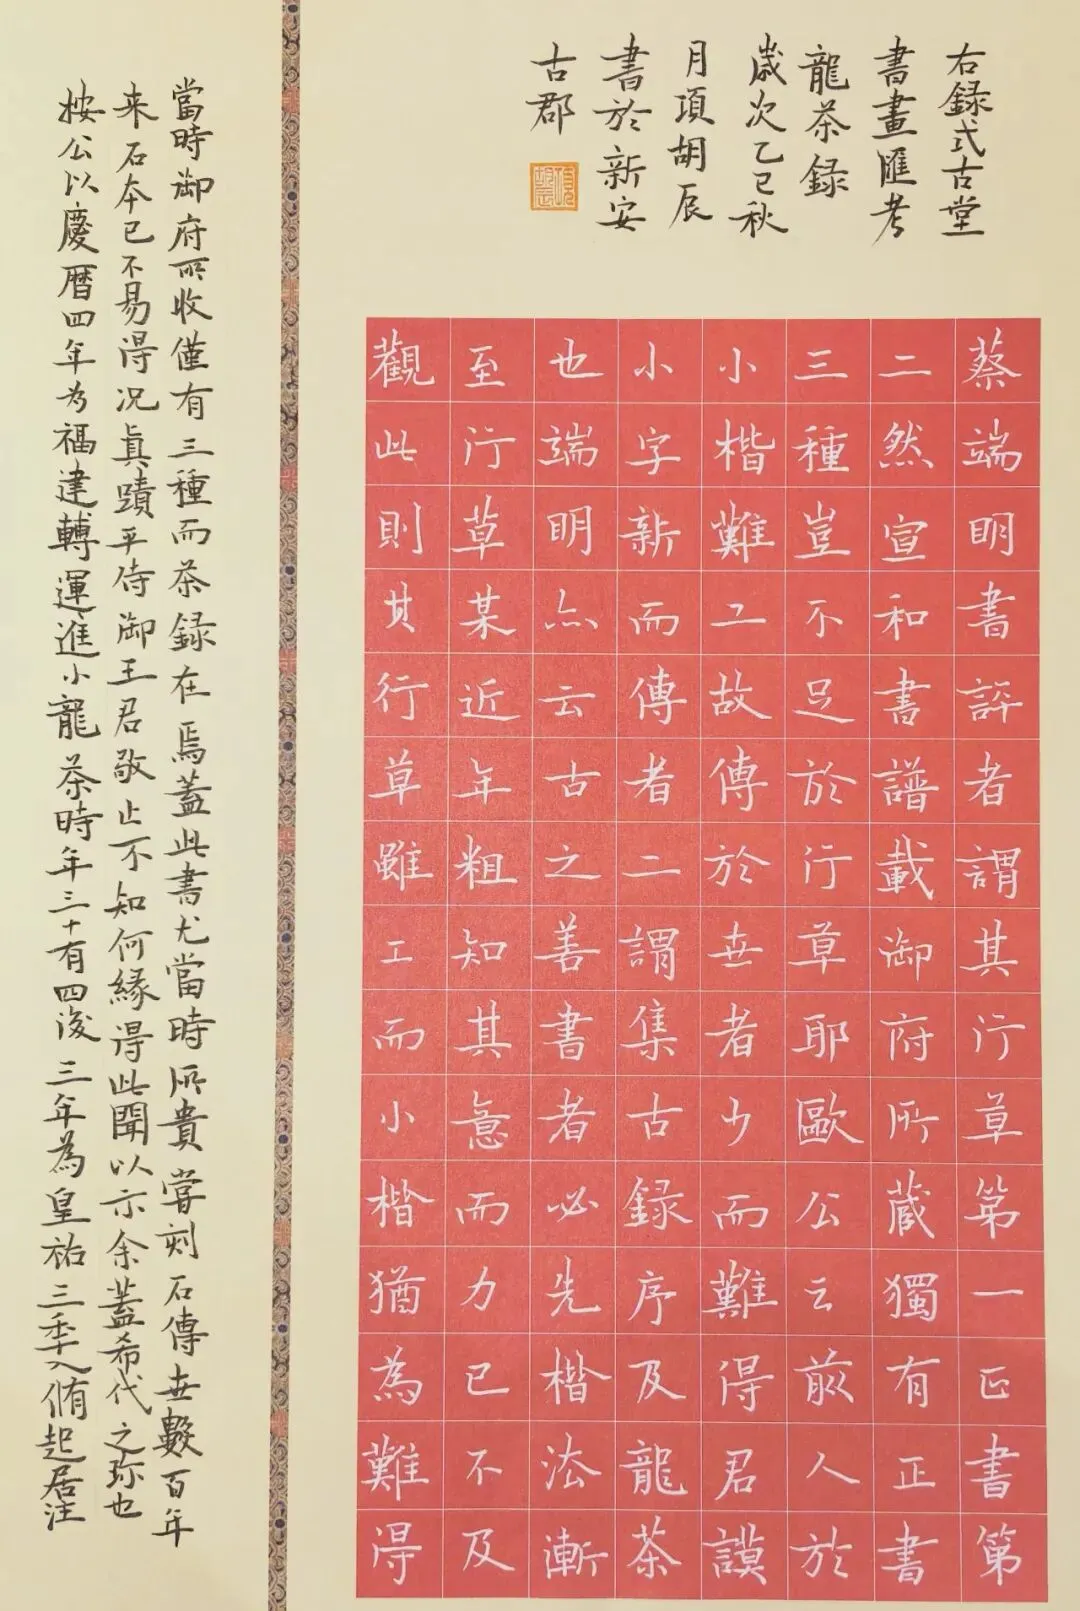 右録式古堂
書畫匯考
龍茶録
歳次乙巳秋
月項胡辰
書於新安
古郡
蔡端明書評者謂其行草第一正書第
二然宣和書譜載御府所蔵獨有正書
三種豈不足於行草耶歐公云前人於
小楷難工故傳於世者少而難得君謨
小字新而傳者二謂集古録序及龍茶
也端明亦云古之善書者必先楷法漸
至行草某近年粗知其意而力已不及
觀此則其行草雖工而小楷猶為難得
當時御府所收僅有三種而茶録在焉蓋此書尤當時所貴嘗刻石傳世數百年
来石本已不易得况真蹟乎侍御王君敬止不知何縁得此聞以示余蓋希代之珎也
桉公以慶暦四年為福建轉運進小龍茶時年三十有四後三年為皇祐三年入脩起居注